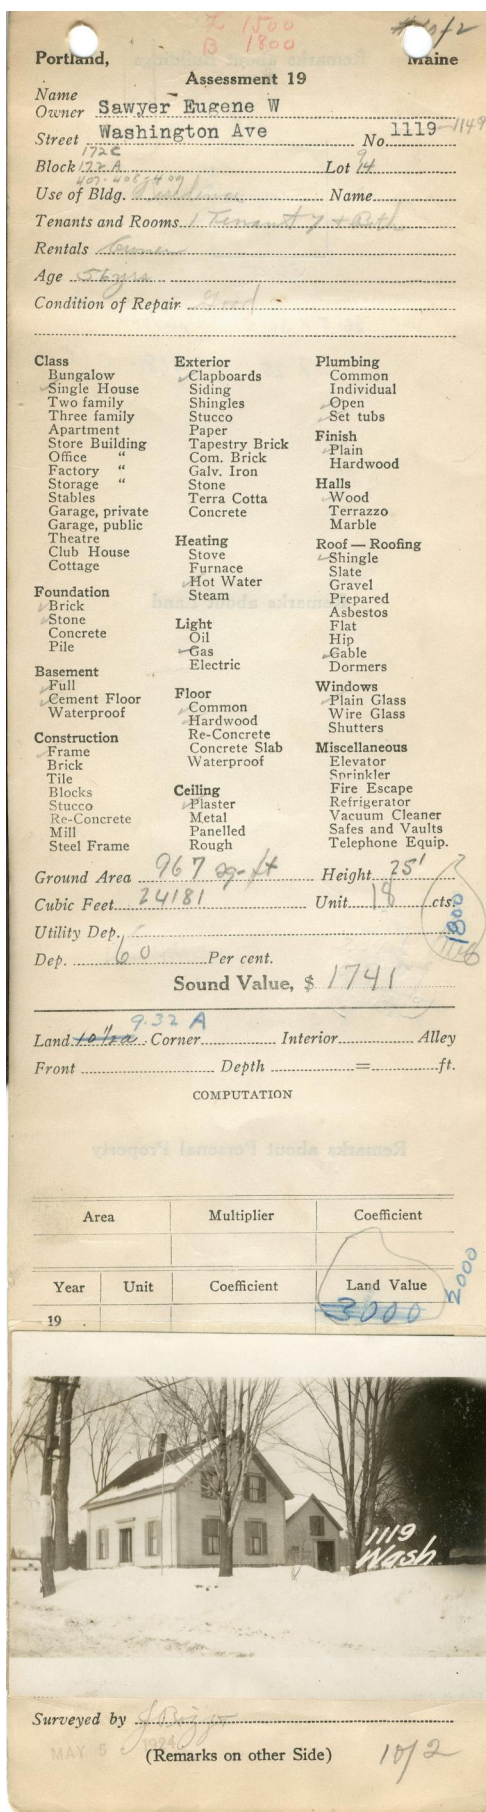 L 1500
B 1800
1 of 2
Portland, Maine
Assessment 19
Name
Owner Sawyer Eugene W
Street Washington Ave No. 1119-1149
172C 9
Block 172 A Lot 14
407-408-409
Use of Bldg. Residence Name
Tenants and Rooms 1 Tenant 7 + Bath
Rentals Owner
Age 56 yrs
Condition of Repair Good
Class
Bungalow
Single House
Two family
Three family
Apartment
Store Building
Office "
Factory "
Storage "
Stables
Garage, private
Garage, public
Theatre
Club House
Cottage
Foundation
Brick
Stone
Concrete
Pile
Basement
Full
Cement Floor
Waterproof
Construction
Frame
Brick
Tile
Blocks
Stucco
Re-Concrete
Mill
Steel Frame
Exterior
Clapboards
Siding
Shingles
Stucco
Paper
Tapestry Brick
Com. Brick
Galv. Iron
Stone
Terra Cotta
Concrete
Heating
Stove
Furnace
Hot Water
Steam
Light
Oil
Gas
Electric
Floor
Common
Hardwood
Re-Concrete
Concrete Slab
Waterproof
Ceiling
Plaster
Metal
Panelled
Rough
Plumbing
Common
Individual
Open
Set tubs
Finish
Plain
Hardwood
Halls
Wood
Terrazzo
Marble
Roof — Roofing
Shingle
Slate
Gravel
Prepared
Asbestos
Flat
Hip
Gable
Dormers
Windows
Plain Glass
Wire Glass
Shutters
Miscellaneous
Elevator
Sprinkler
Fire Escape
Refrigerator
Vacuum Cleaner
Safes and Vaults
Telephone Equip.
Ground Area 967 sq-ft Height 25'
Cubic Feet 24181 Unit 18 cts.
1800
Utility Dep.
Dep. 60 Per cent.
Sound Value, $ 1741
9.32 A
Land 10 1/2 a Corner Interior Alley
Front Depth = ft.
COMPUTATION
Area Multiplier Coefficient
Year Unit Coefficient Land Value
19 3000
2000
1119
Wash
Surveyed by
MAY 5 1924
(Remarks on other Side) 1 of 2